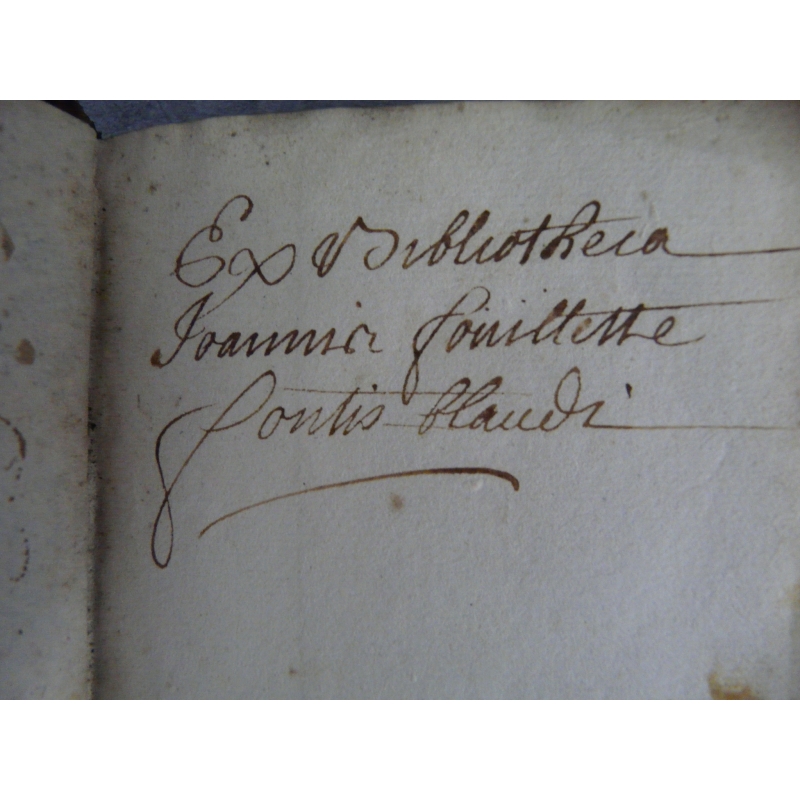 Ex Bibliotheca
Joannis fouillette
fontis blaudi